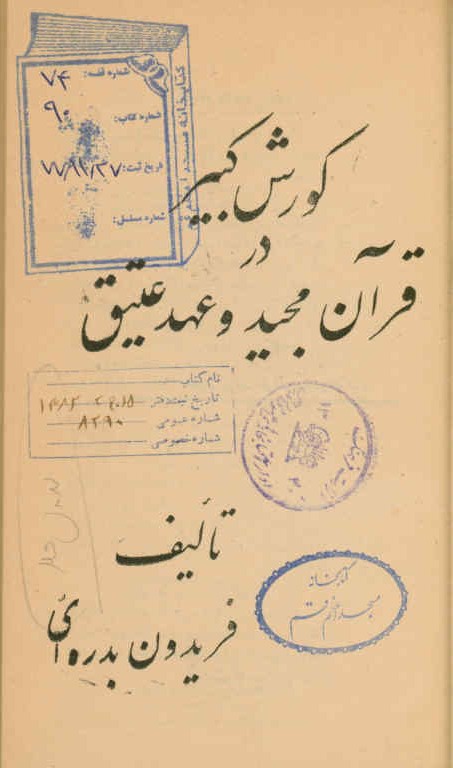 شماره قفسه: ۷۴
شماره کتاب: ۹۰
تاریخ ثبت:
شماره مسلسل:
کتابخانه مسجد
کورش کبیر
در
قرآن مجید و عهد عتیق
نام کتاب
تاریخ ثبت دفتر
شماره عمومی ۸۲۹۰
شماره خصوصی
تألیف
فریدون بدره‌ای
کتابخانه
مسجد اعظم قم